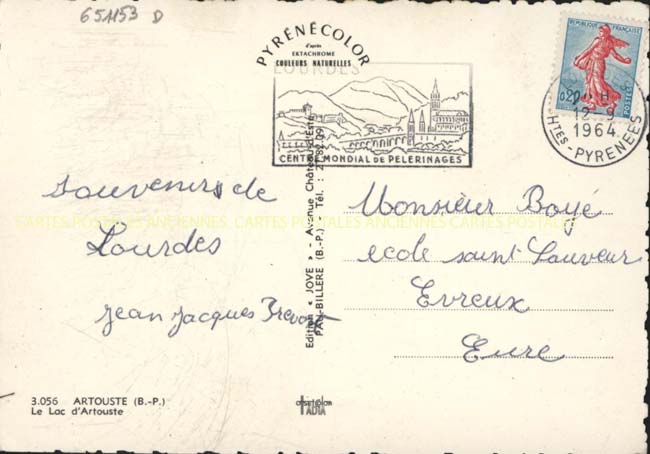 651153 D
PYRÉNÉCOLOR
d'après
EKTACHROME
COULEURS NATURELLES
LOURDES
CENTRE MONDIAL DE PELERINAGES
REPUBLIQUE FRANÇAISE
0,20
POSTES
12-9
1964
HTES-PYRENEES
Souvenirs de
Lourdes
Jean Jacques
Monsieur Boyé
école saint Sauveur
Evreux
Eure
Edition « JOVE » - Avenue Château-d'Este
PAU-BILLERE (B.-P.) - Tél. :
CARTES POSTALES ANCIENNES, CARTES POSTALES ANCIENNES CARTES POSTALES
3.056 ARTOUSTE (B.-P.)
Le Lac d'Artouste